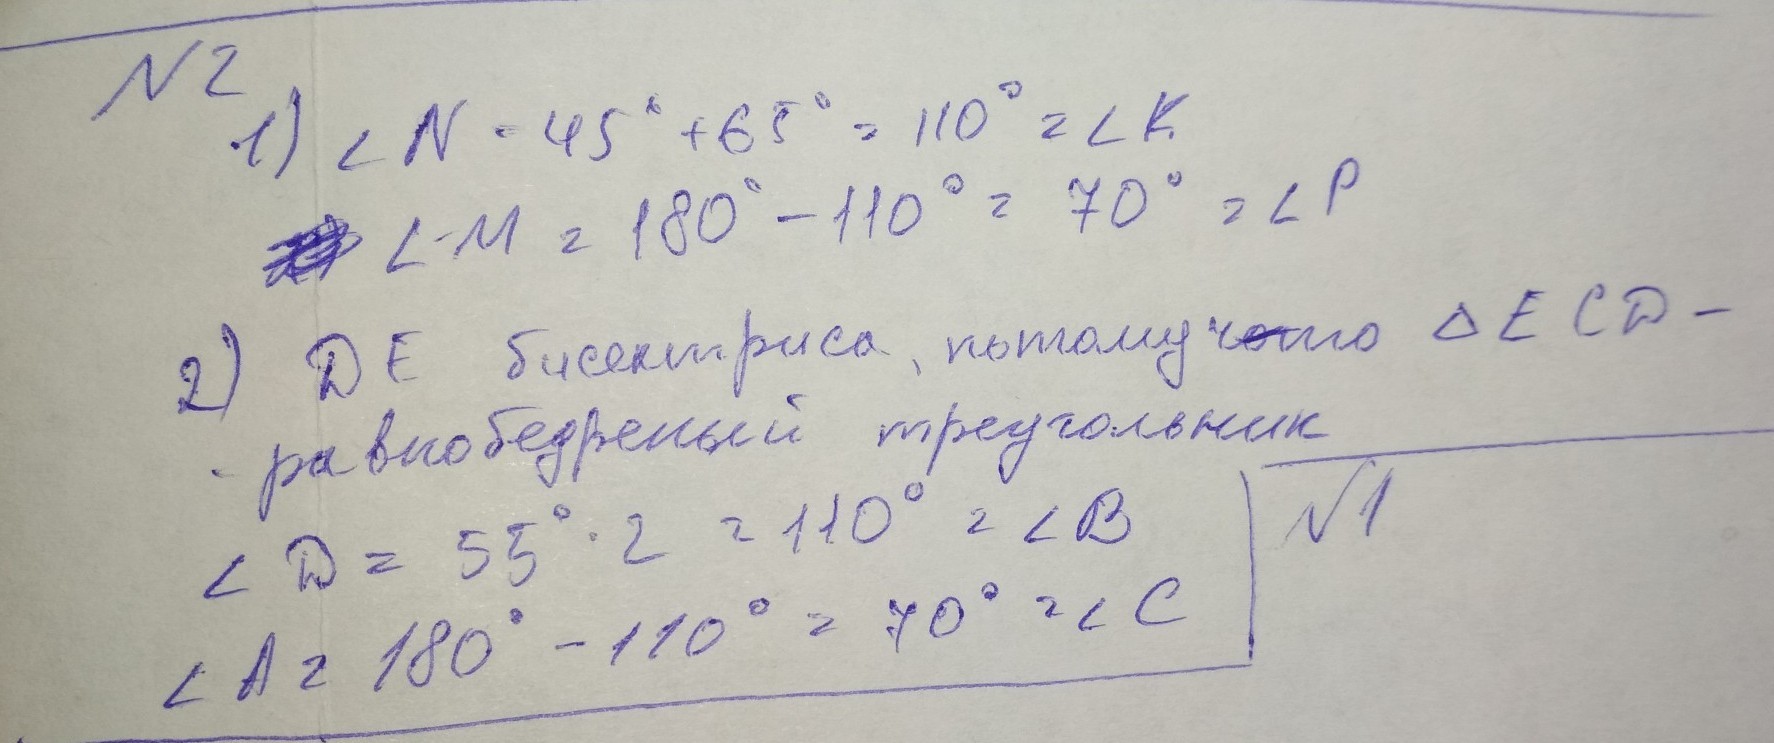 N2
1) ∠N = 45° + 65° = 110° = ∠K
∠M = 180° - 110° = 70° = ∠P
2) DE бисектриса, потомучто △ECD -
- равнобедреный треугольник
∠D = 55° · 2 = 110° = ∠B
∠A = 180° - 110° = 70° = ∠C
N1